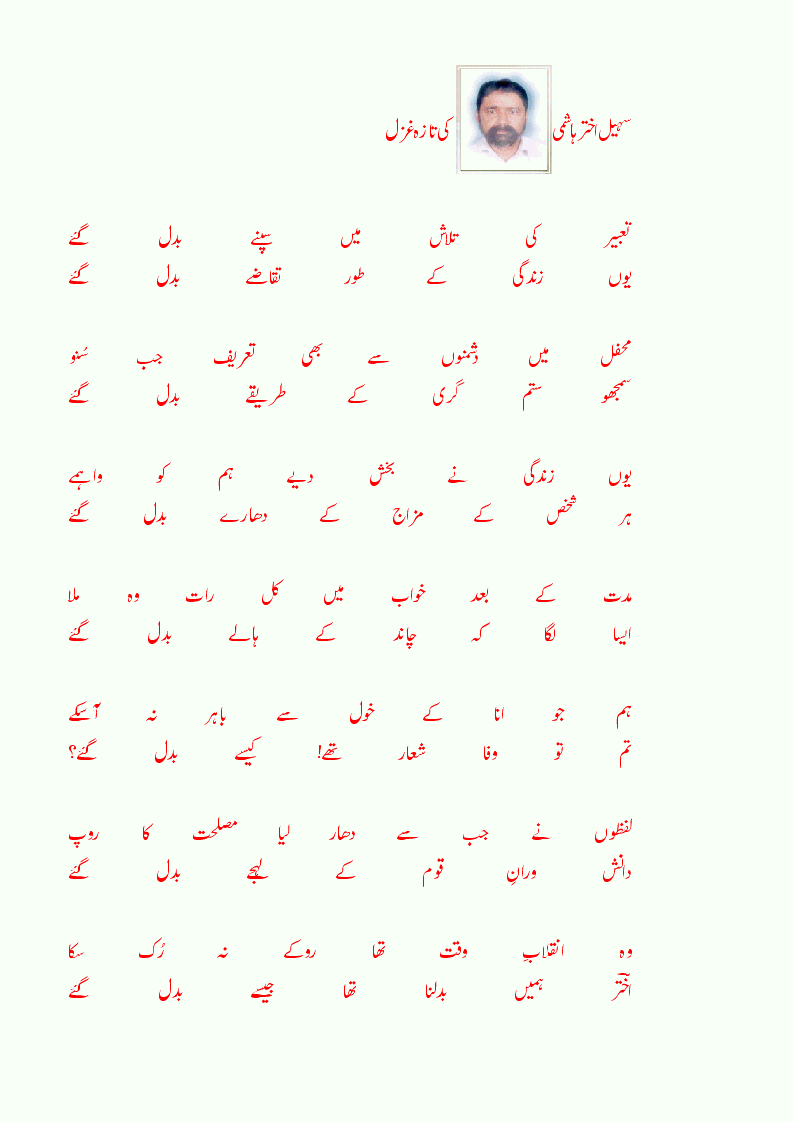 سہیل اختر ہاشمی کی تازہ غزل
تعبیر کی تلاش میں سپنے بدل گئے
یوں زندگی کے طور تقاضے بدل گئے
محفل میں دشمنوں سے بھی تعریف جب سُنو
سمجھو ستم گری کے طریقے بدل گئے
یوں زندگی نے بخش دیے ہم کو واہمے
ہر شخص کے مزاج کے دھارے بدل گئے
مدت کے بعد خواب میں کل رات وہ ملا
ایسا لگا کہ چاند کے ہالے بدل گئے
ہم جو انا کے خول سے باہر نہ آسکے
تم تو وفا شعار تھے! کیسے بدل گئے؟
لفظوں نے جب سے دھار لیا مصلحت کا روپ
دانش ورانِ قوم کے لہجے بدل گئے
وہ انقلابِ وقت تھا روکے نہ رُک سکا
اخترؔ ہمیں بدلنا تھا جیسے بدل گئے